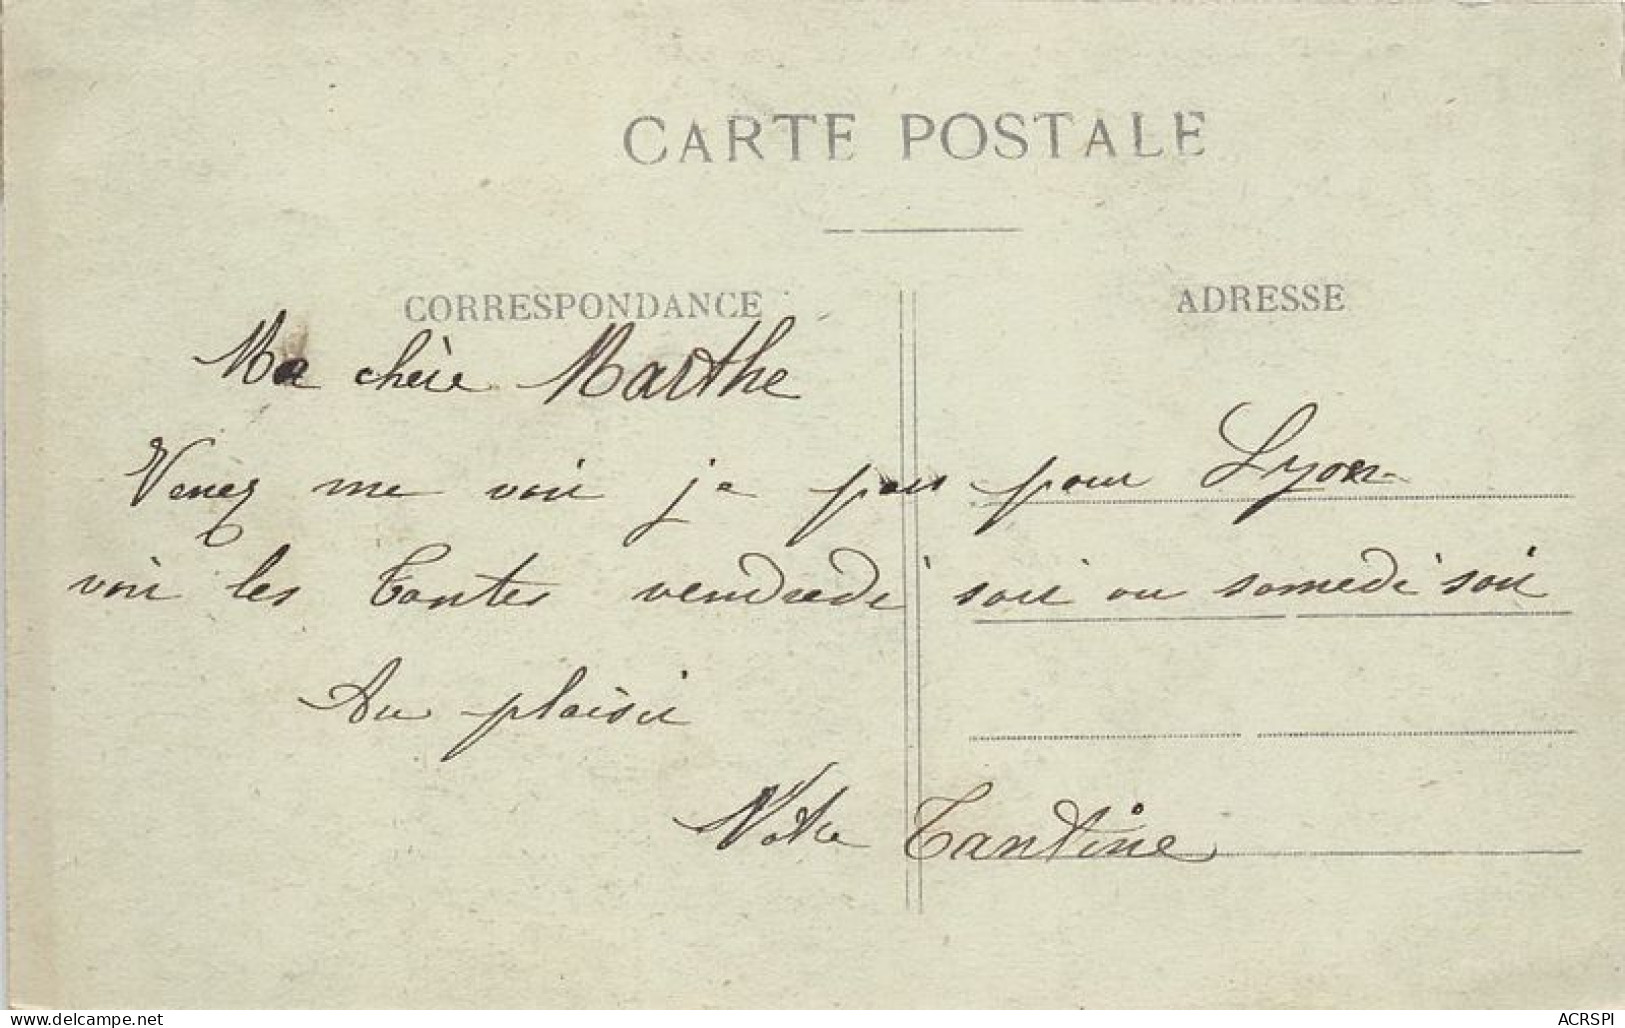 CARTE POSTALE
CORRESPONDANCE
ADRESSE
Ma chère Marthe
Venez me voir je pars pour Lyon
voir les Tantes vendredi soir ou samedi soir
Au plaisir
Votre Tantine
www.delcampe.net
ACRSPI